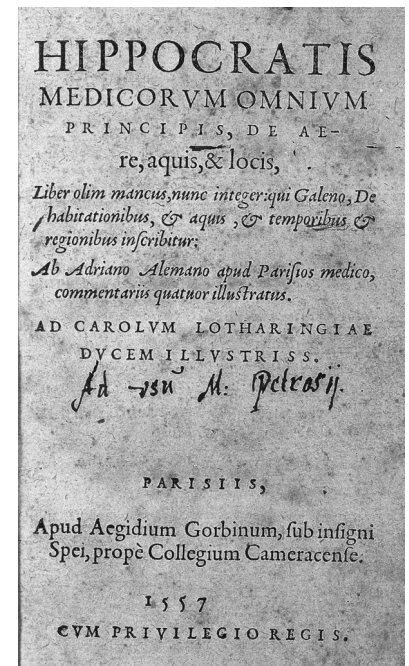 HIPPOCRATIS
MEDICORVM OMNIVM
PRINCIPIS, DE AE-
re, aquis, & locis,
Liber olim mancus, nunc integer: qui Galeno, De
habitationibus, & aquis, & temporibus &
regionibus inſcribitur:
Ab Adriano Alemano apud Pariſios medico,
commentariis quatuor illuſtratus.
AD CAROLVM LOTHARINGIAE
DVCEM ILLVSTRISS.
Ad vsū M: Petrasij.
PARISIIS,
Apud Aegidium Gorbinum, ſub inſigni
Spei, propè Collegium Cameracenſe.
1557
CVM PRIVILEGIO REGIS.